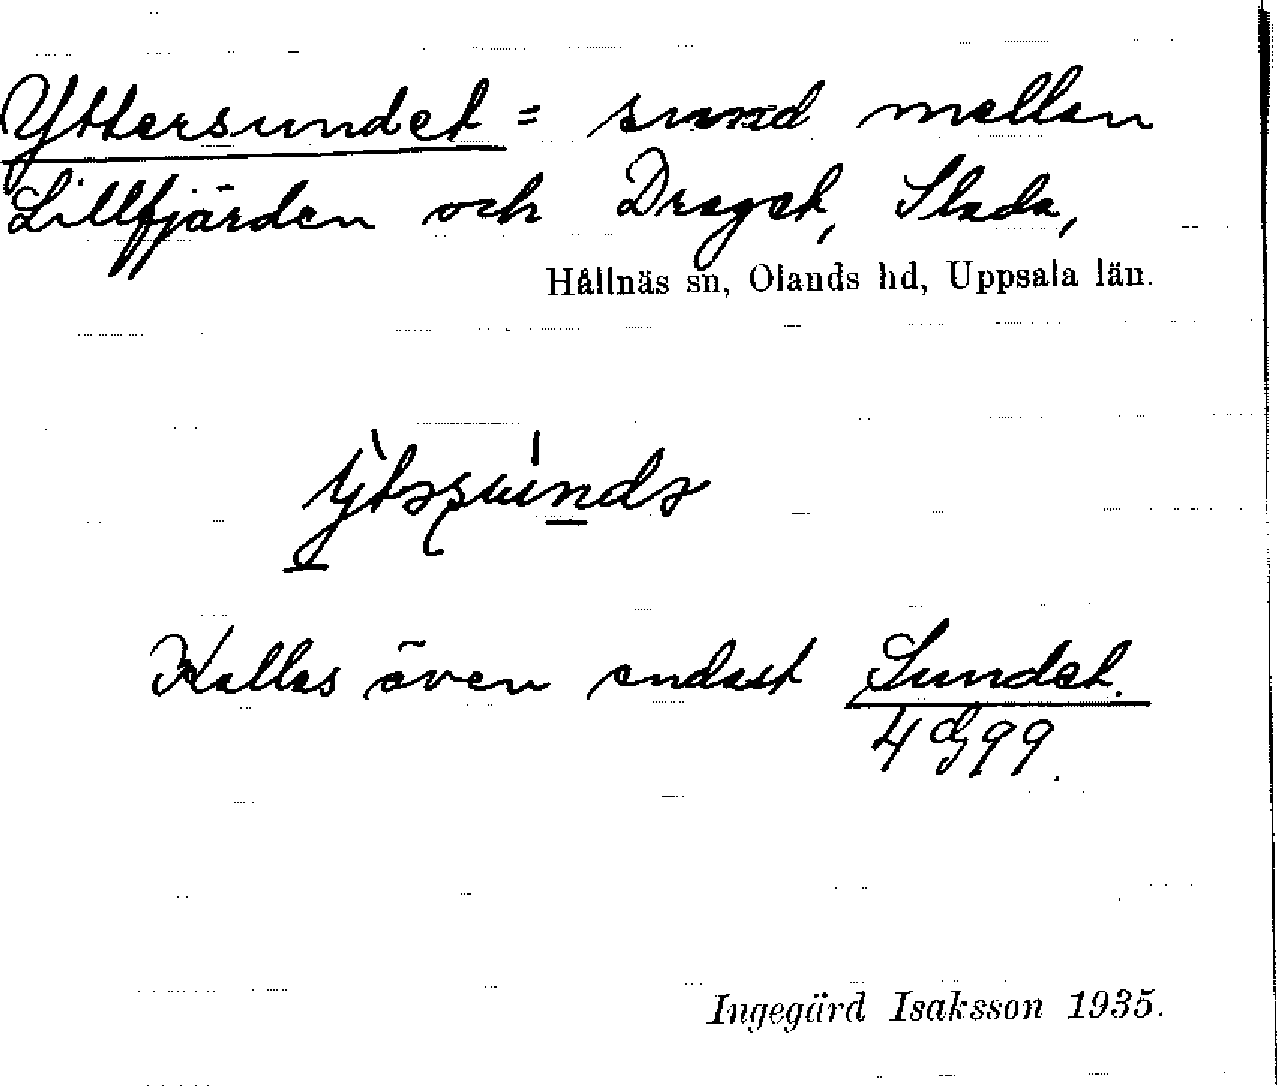 Yttersundet = sund mellan
Lillfjärden och Draget, Slada,
Hållnäs sn, Olands hd, Uppsala län.
Kallas även endast Sundet.
4 dj 99.
Ingegärd Isaksson 1935.